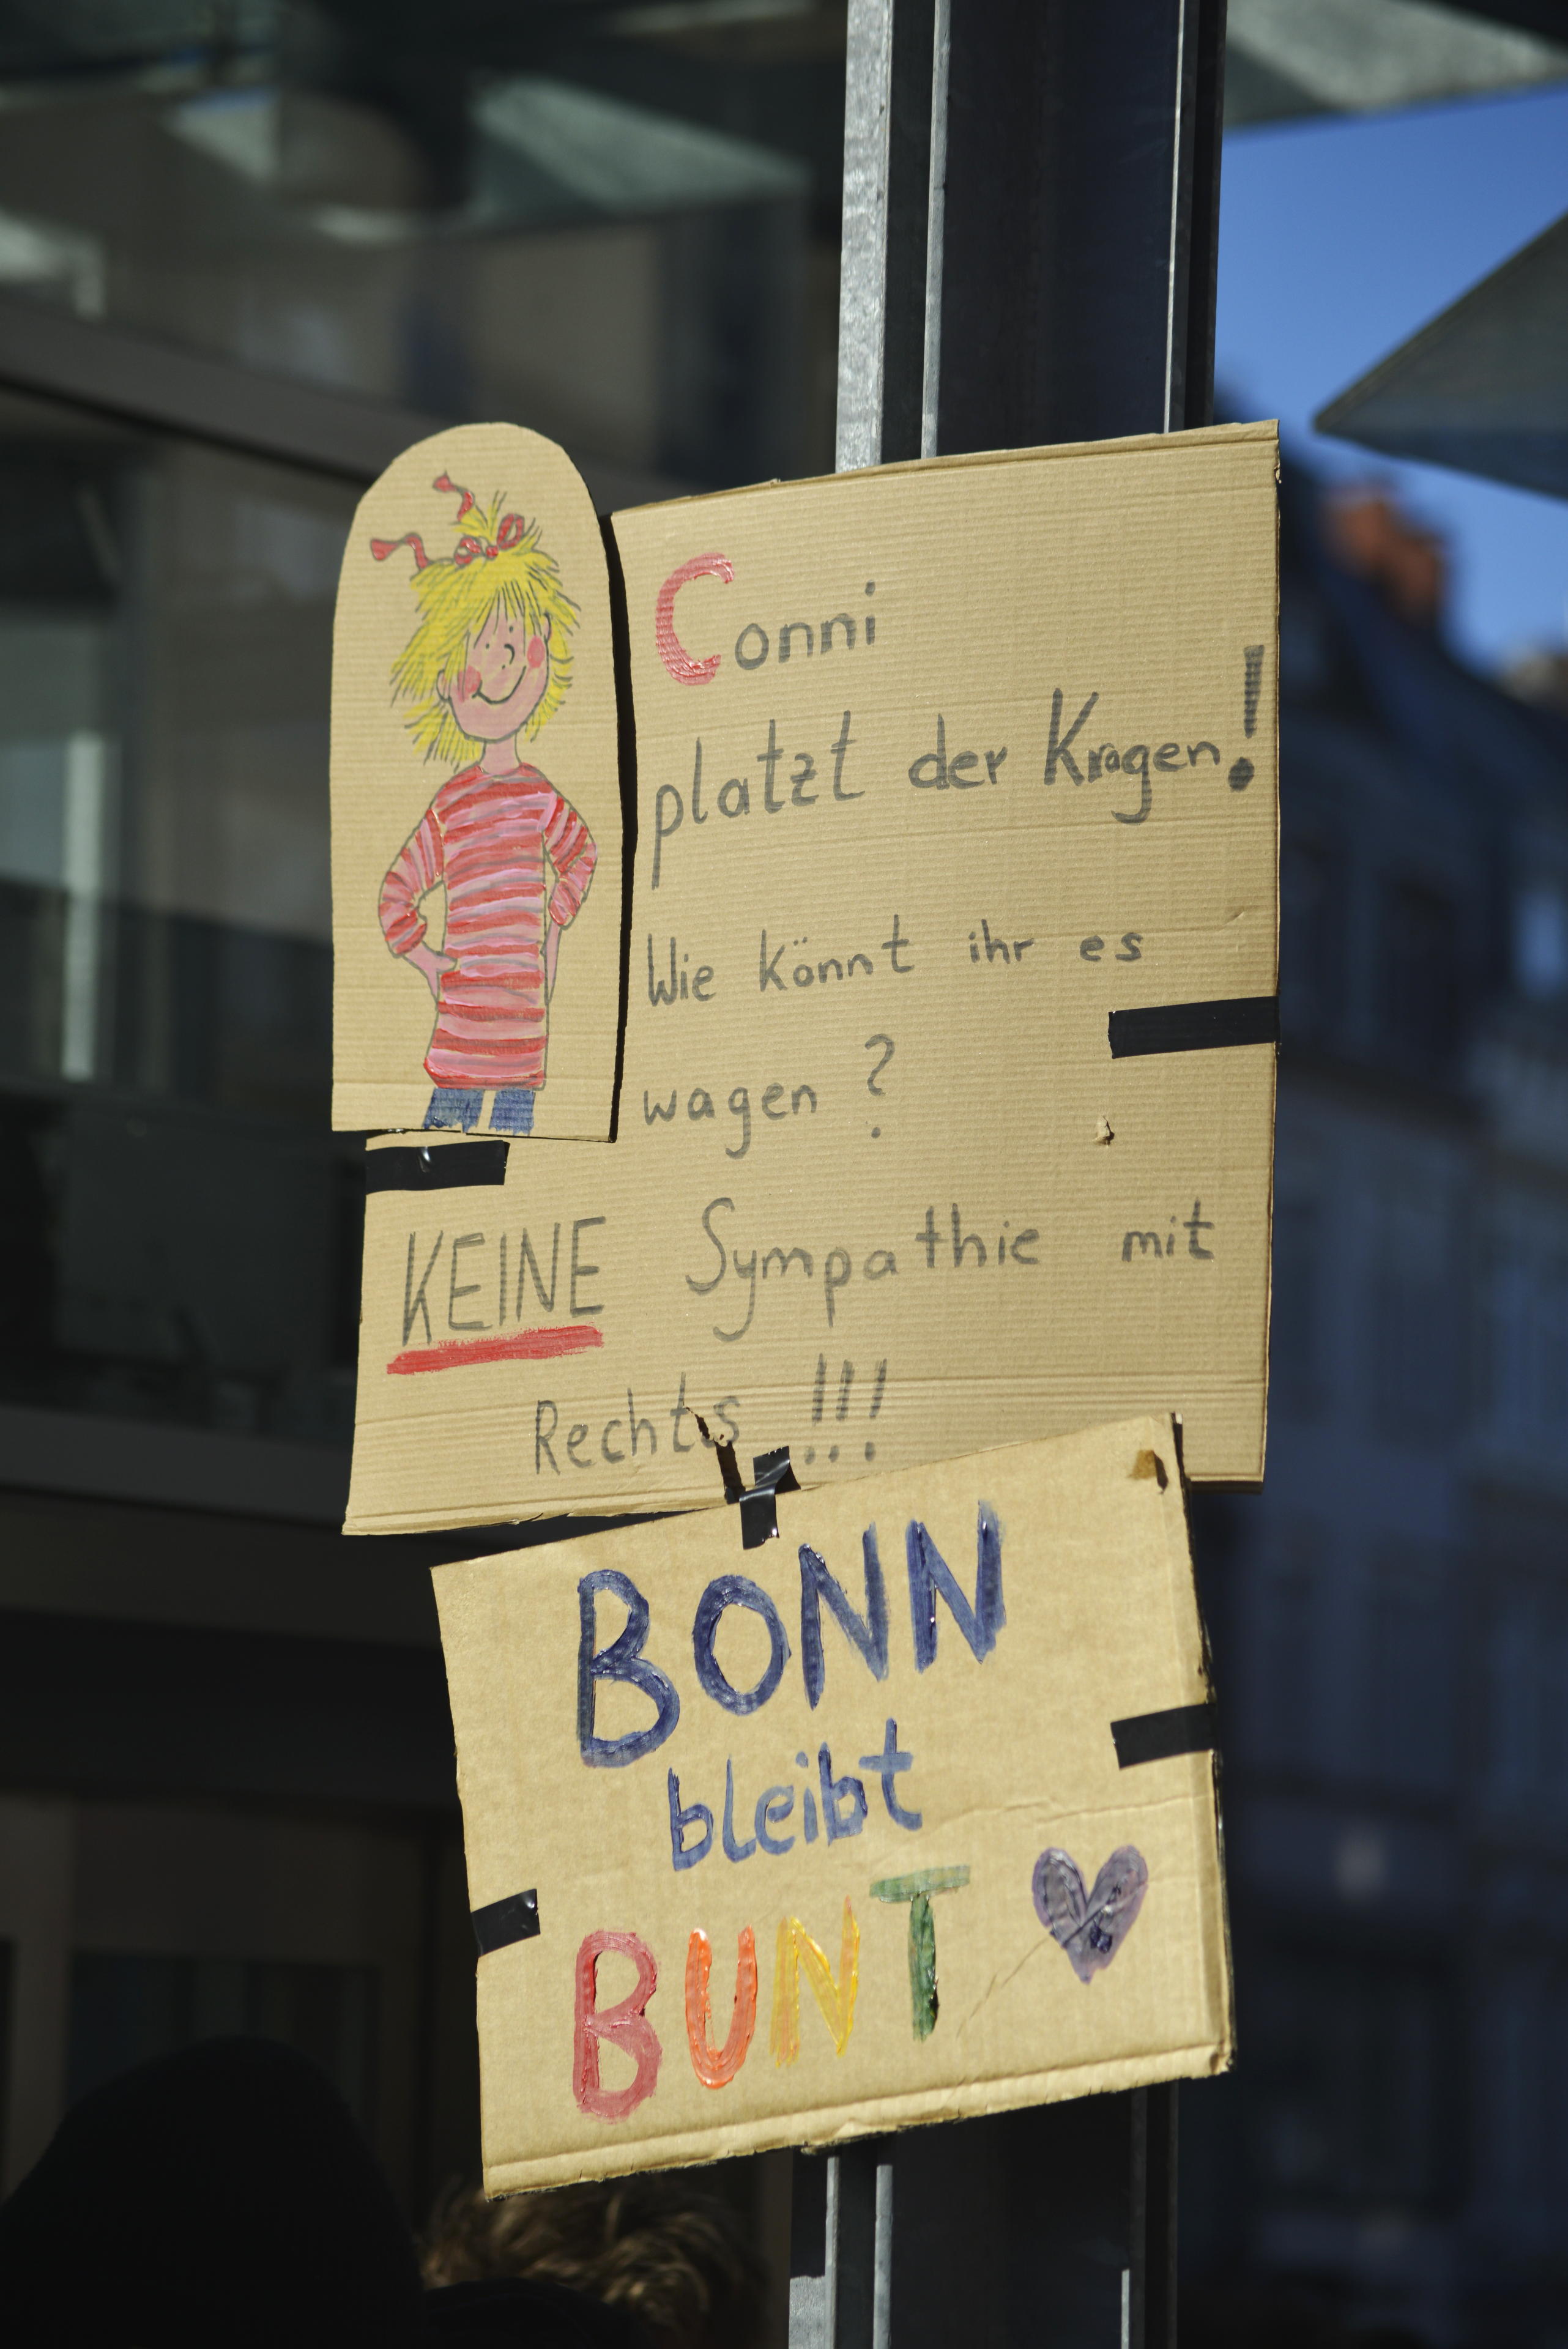 Conni
platzt der Kragen!
Wie könnt ihr es
wagen ?
KEINE Sympathie mit
Rechts !!!
BONN
bleibt
BUNT